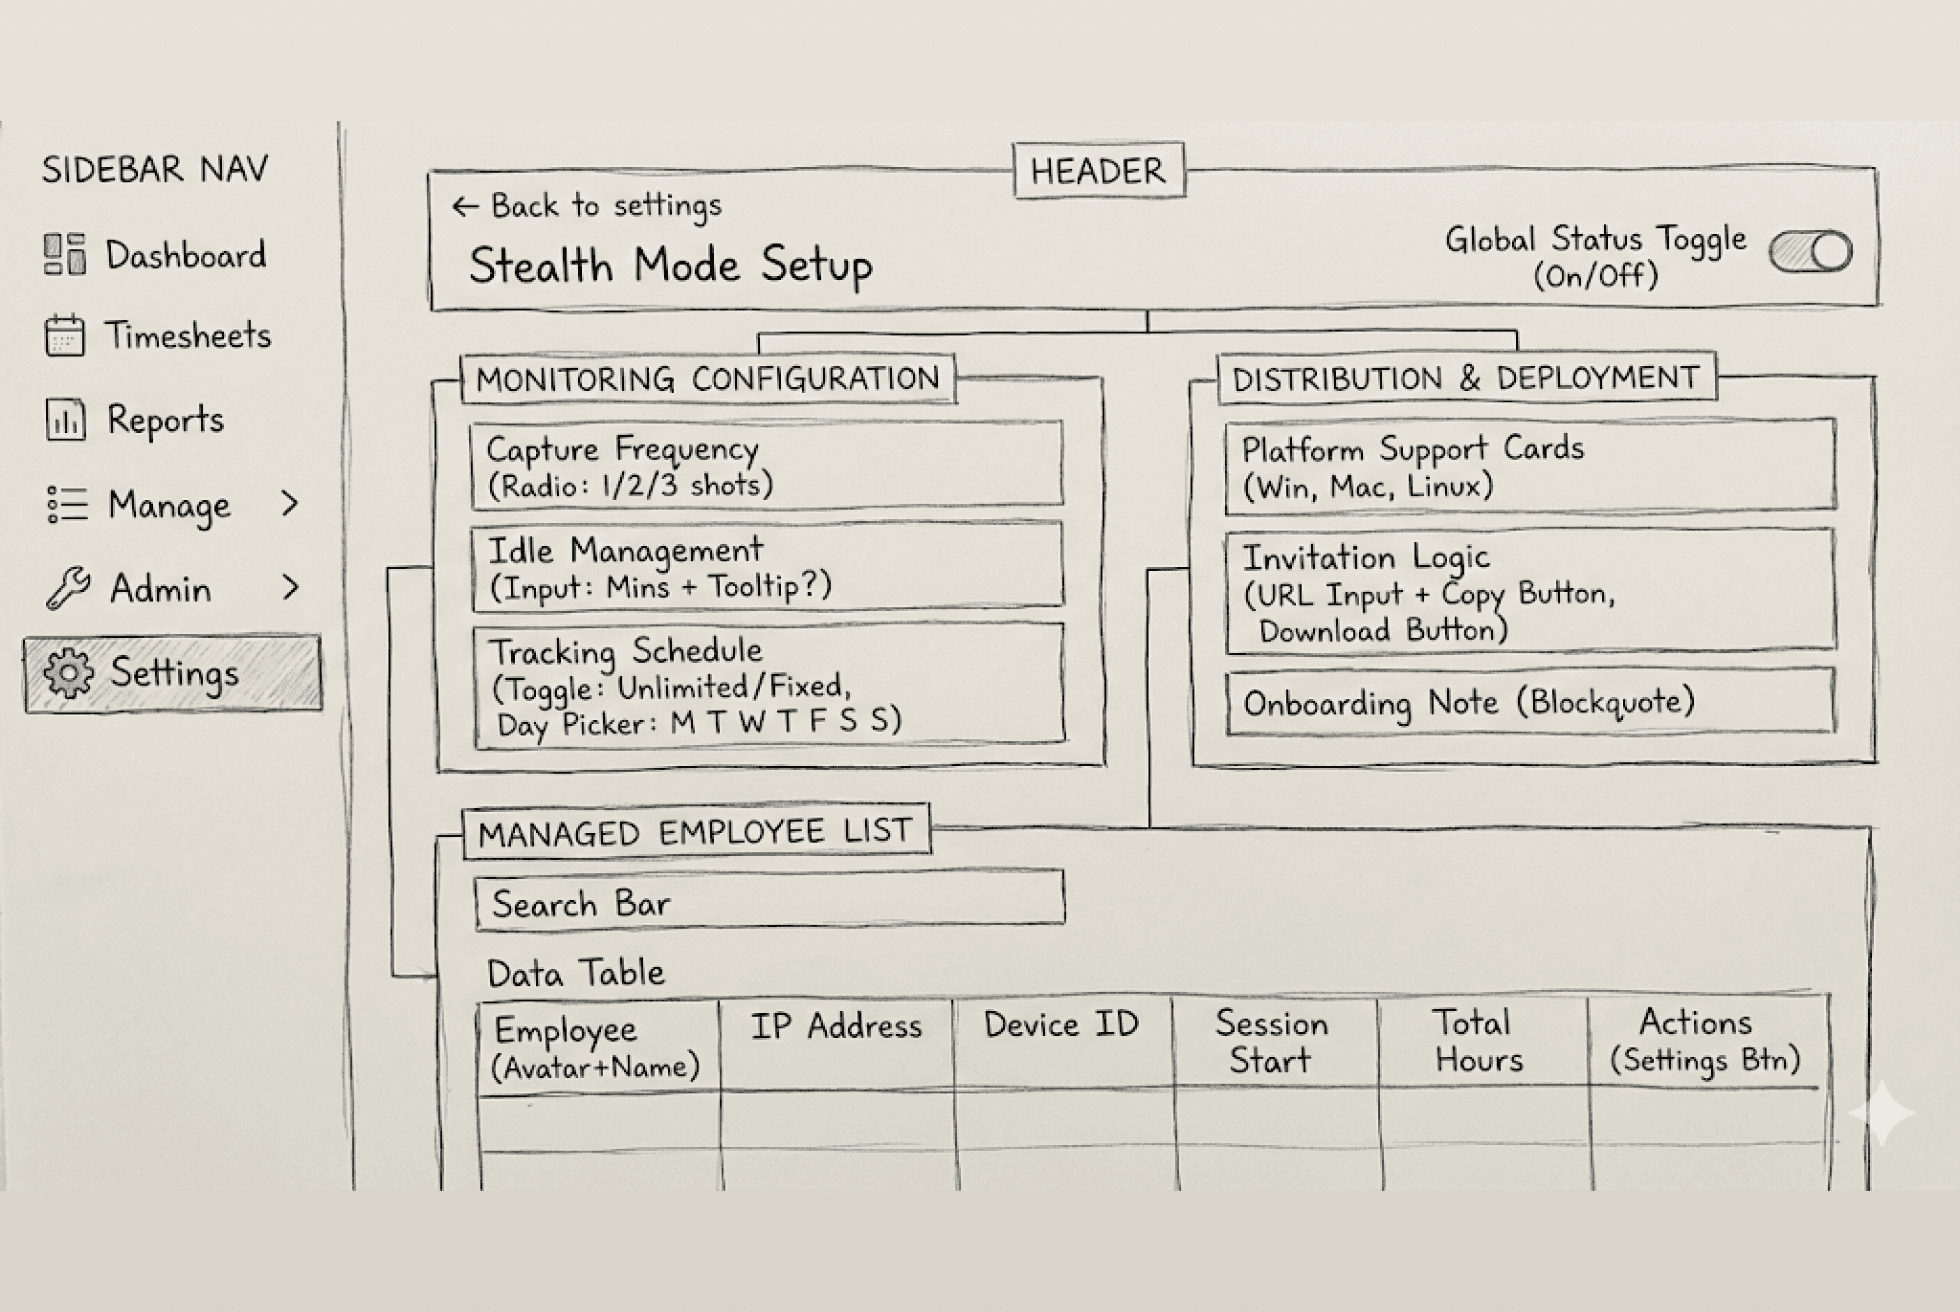 SIDEBAR NAV
Dashboard
Timesheets
Reports
Manage
Admin
Settings
HEADER
← Back to settings
Stealth Mode Setup
Global Status Toggle
(On/Off)
MONITORING CONFIGURATION
Capture Frequency
(Radio: 1/2/3 shots)
Idle Management
(Input: Mins + Tooltip?)
Tracking Schedule
(Toggle: Unlimited/Fixed,
Day Picker: M T W T F S S)
DISTRIBUTION & DEPLOYMENT
Platform Support Cards
(Win, Mac, Linux)
Invitation Logic
(URL Input + Copy Button,
Download Button)
Onboarding Note (Blockquote)
MANAGED EMPLOYEE LIST
Search Bar
Data Table
Employee
(Avatar+Name)
IP Address
Device ID
Session
Start
Total
Hours
Actions
(Settings Btn)